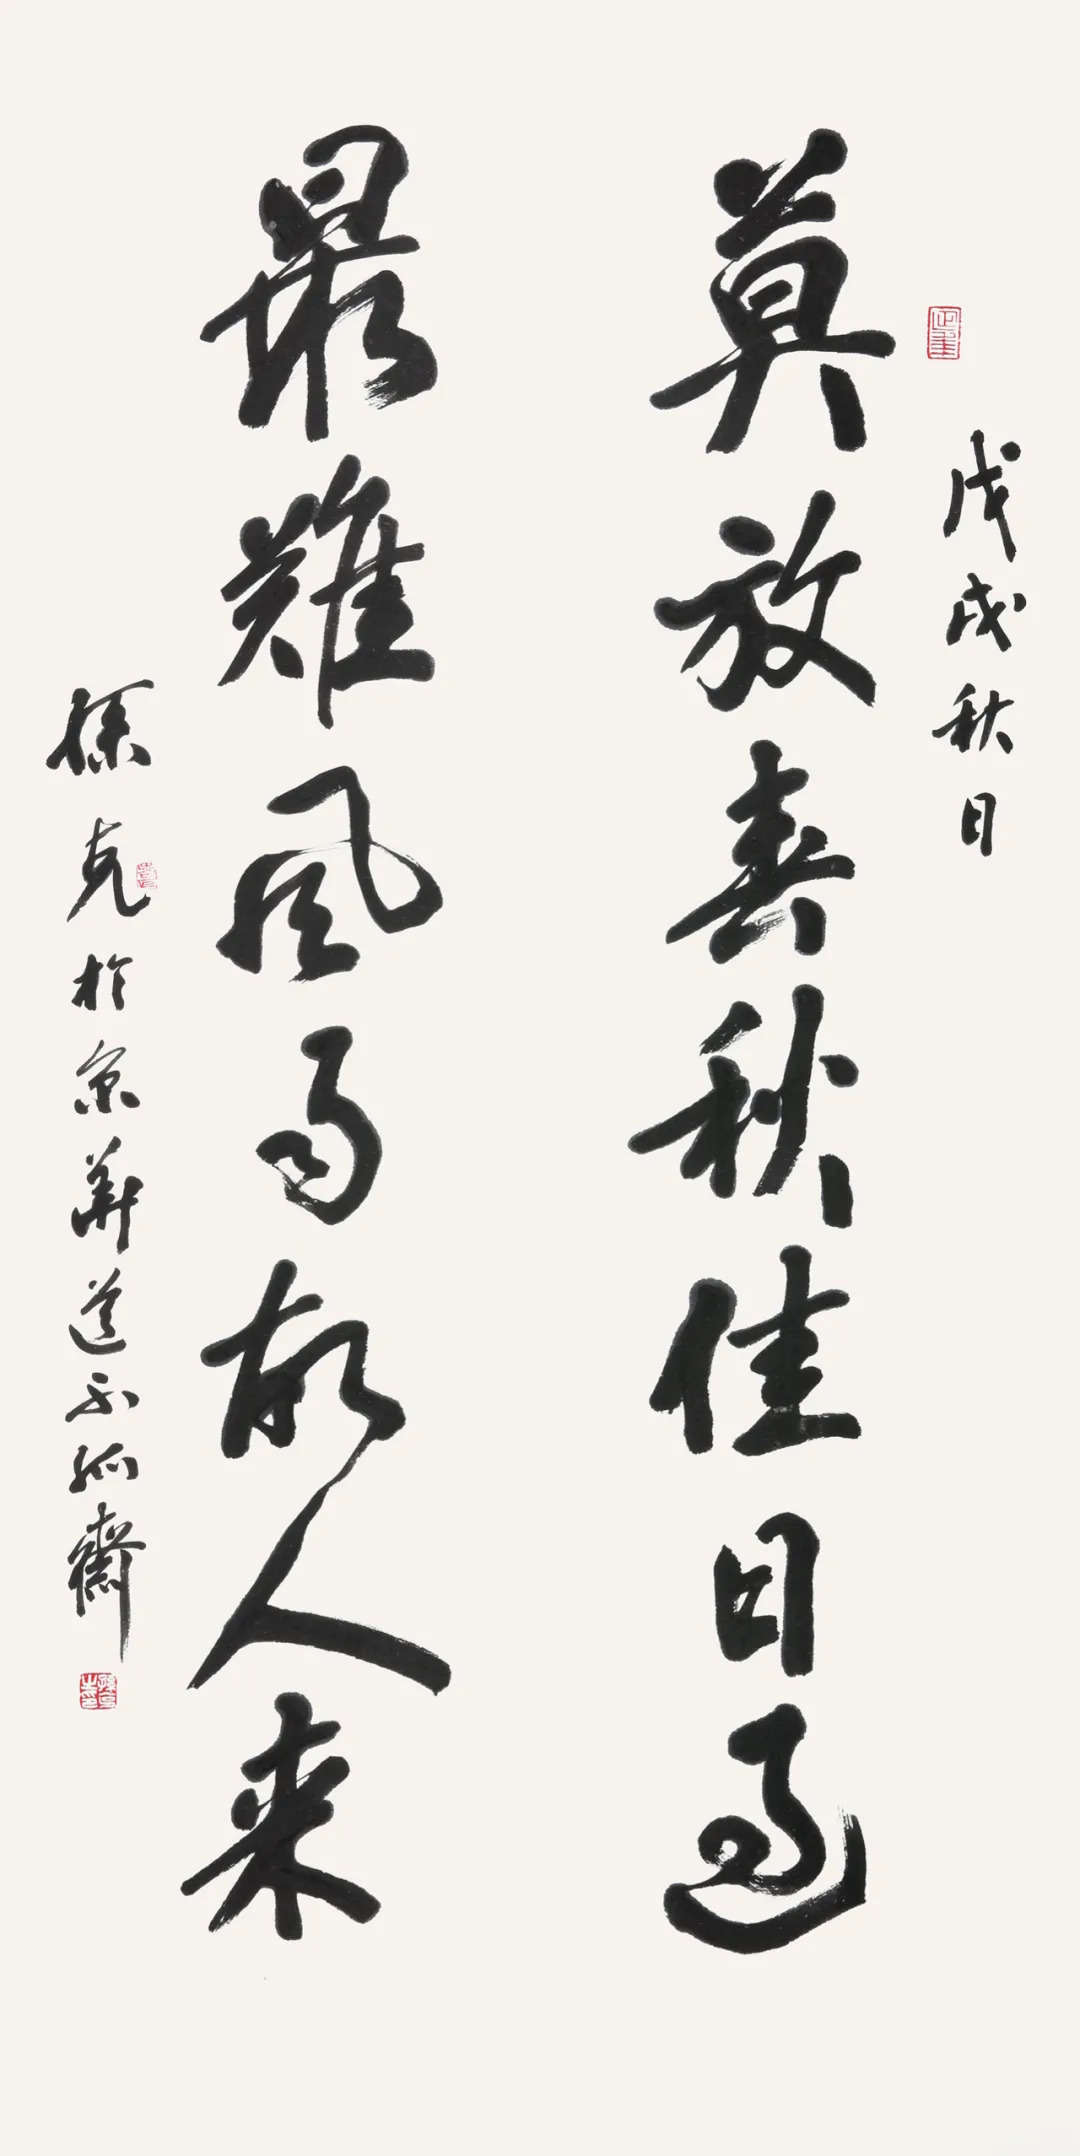 戊戌秋日
莫放春秋佳日過
最難風雨故人来
孫克於京華道不孤齋